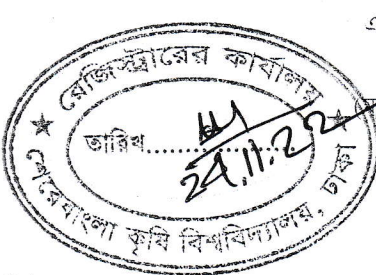 রেজিস্ট্রারের কার্যালয়
তারিখ..............
24.11.22
শেরেবাংলা কৃষি বিশ্ববিদ্যালয়, ঢাকা